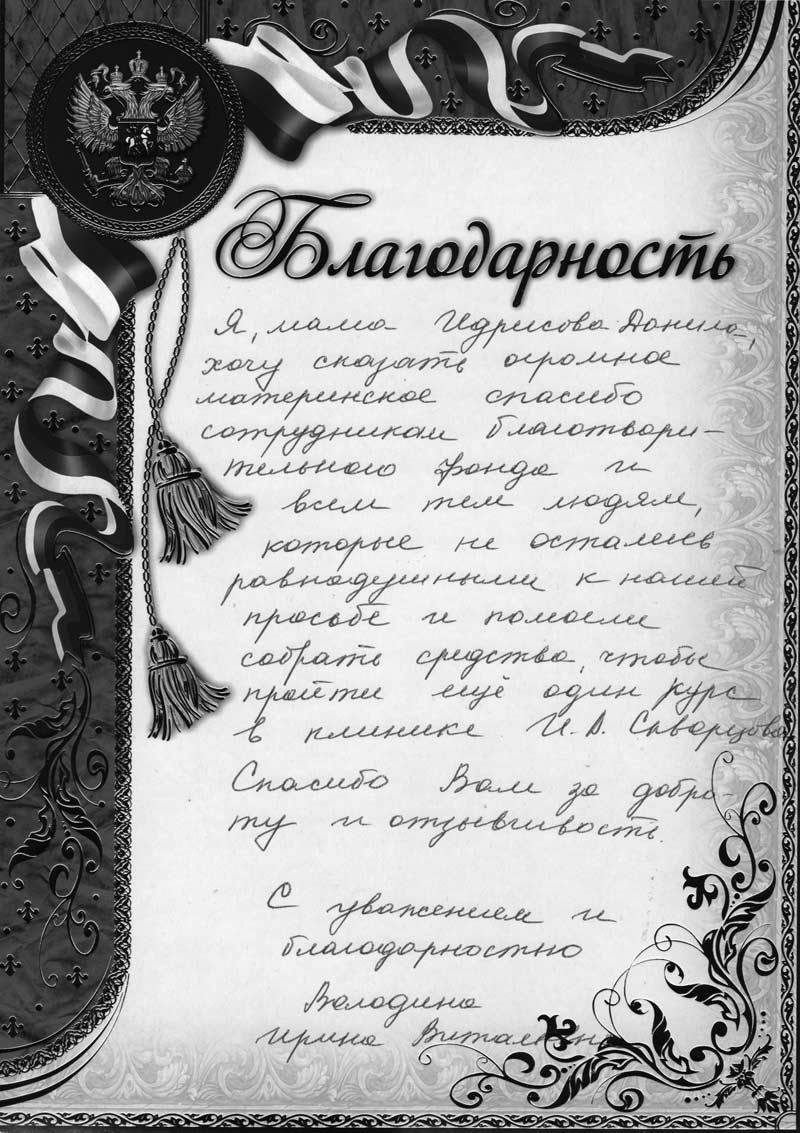 Благодарность
Я, мама Идрисова Данила,
хочу сказать огромное
материнское спасибо
сотрудникам благотвори-
тельного фонда и
всем тем людям,
которые не остались
равнодушными к нашей
просьбе и помогли
собрать средства, чтобы
пройти ещё один курс
в клинике И. А. Скворцова.
Спасибо Вам за добро-
ту и отзывчивость.
С уважением и
благодарностью
Володина
Ирина Витальевна